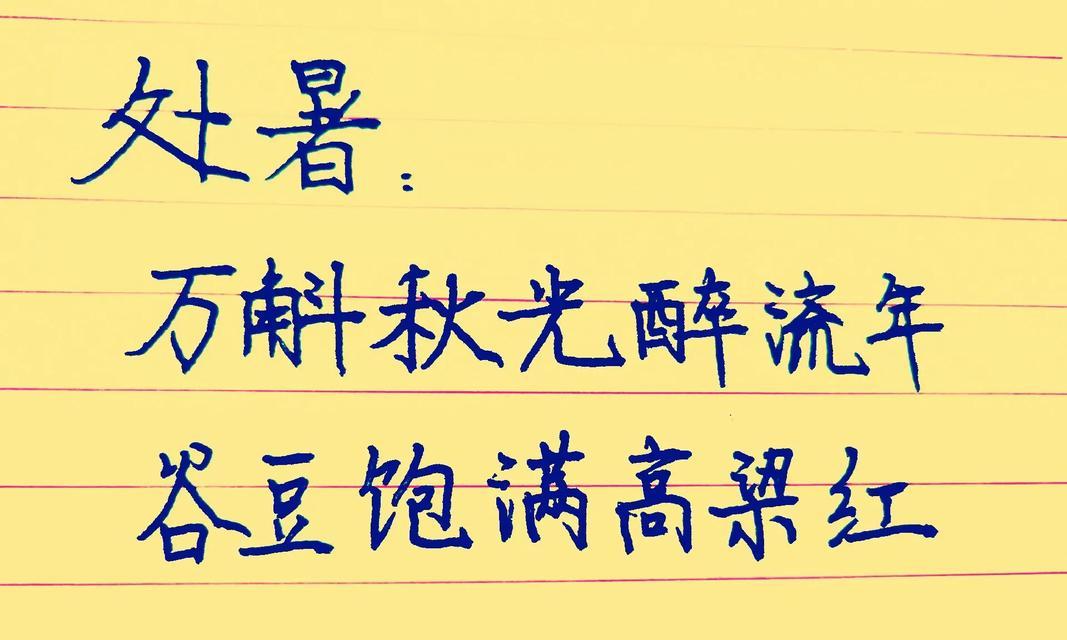 处暑：
万斛秋光醉流年
谷豆饱满高梁红